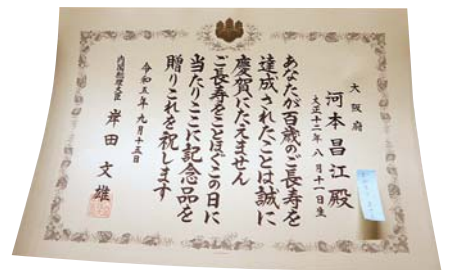 大阪府
河本昌江殿
大正十二年八月十一日生
あなたが百歳のご長寿を
達成されたことは誠に
慶賀にたえません
ご長寿をことほぐこの日に
当たりここに記念品を
贈りこれを祝します
令和五年九月十五日
内閣総理大臣 岸田文雄